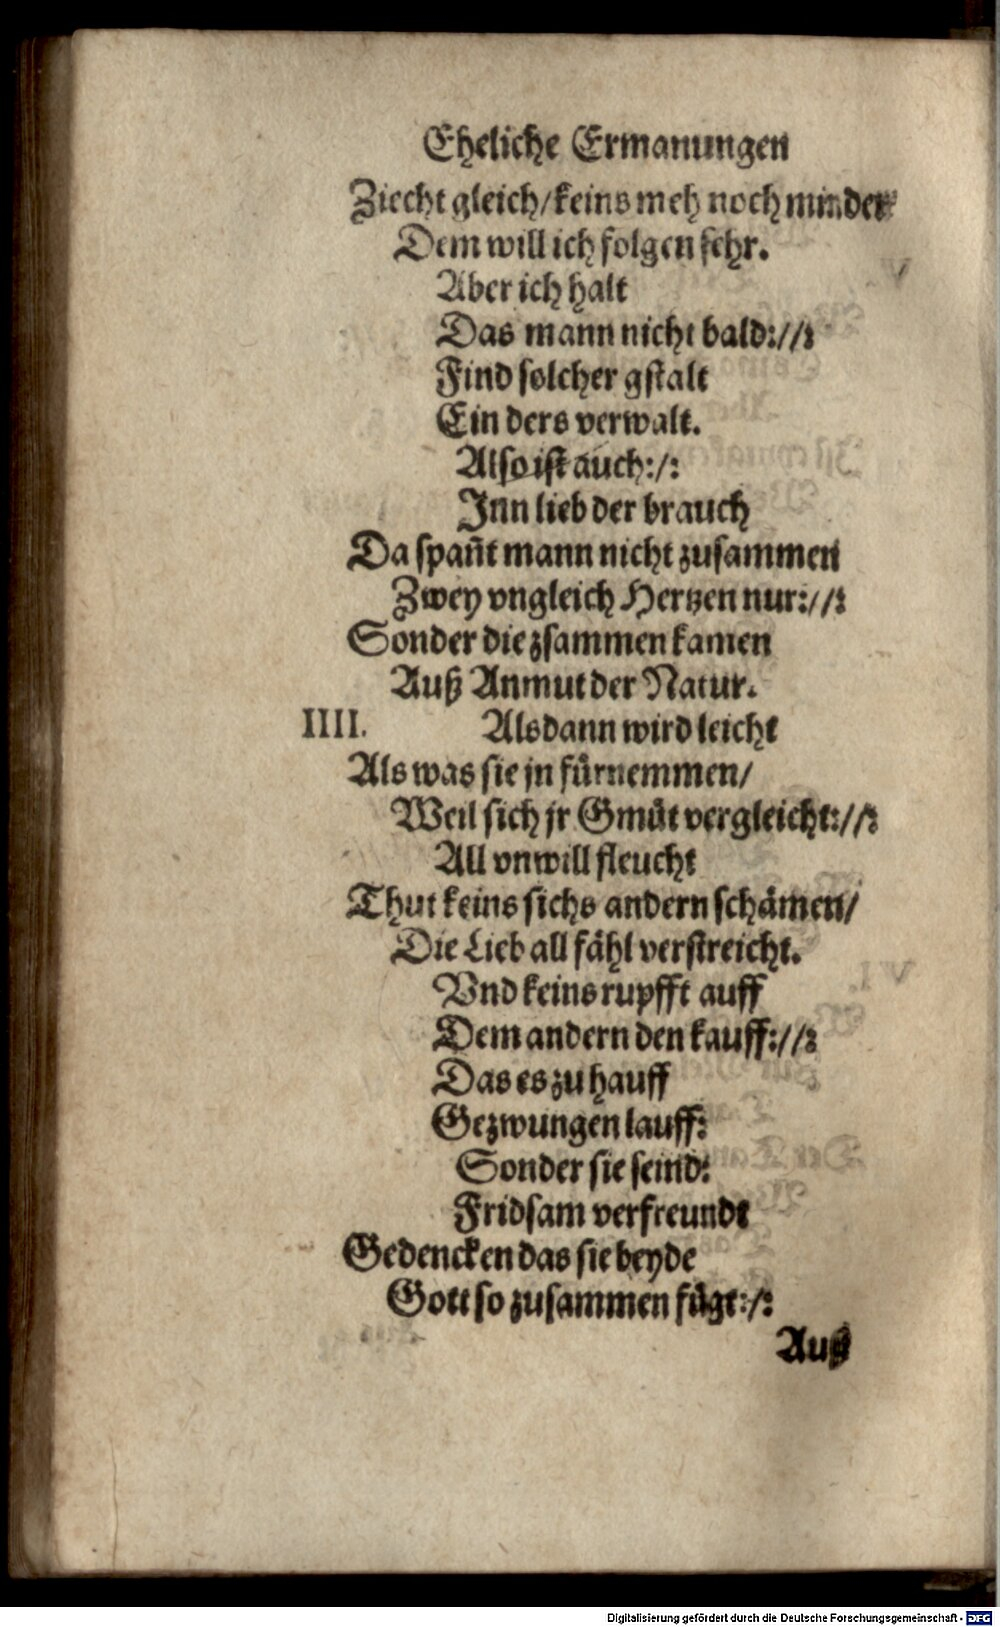 Eheliche Ermanungen
Ziecht gleich/keins meh noch minder
Dem will ich folgen sehr.
Aber ich halt
Das mann nicht bald://:
Find solcher gstalt
Ein ders verwalt.
Also ist auch:/:
Inn lieb der brauch
Da spañt mann nicht zusammen
Zwey vngleich Hertzen nur://:
Sonder die zsammen kamen
Auß Anmut der Natur.
IIII. Alsdann wird leicht
Als was sie jn fürnemmen/
Weil sich jr Gmüt vergleicht://:
All vnwill fleucht
Thut keins sichs andern schämen/
Die Lieb all fähl verstreicht.
Vnd keins rupfft auff
Dem andern den kauff://:
Das es zu hauff
Gezwungen lauff:
Sonder sie seind:
Fridsam verfreundt
Gedencken das sie beyde
Gott so zusammen fügt:/:
Auß
Digitalisierung gefördert durch die Deutsche Forschungsgemeinschaft - DFG